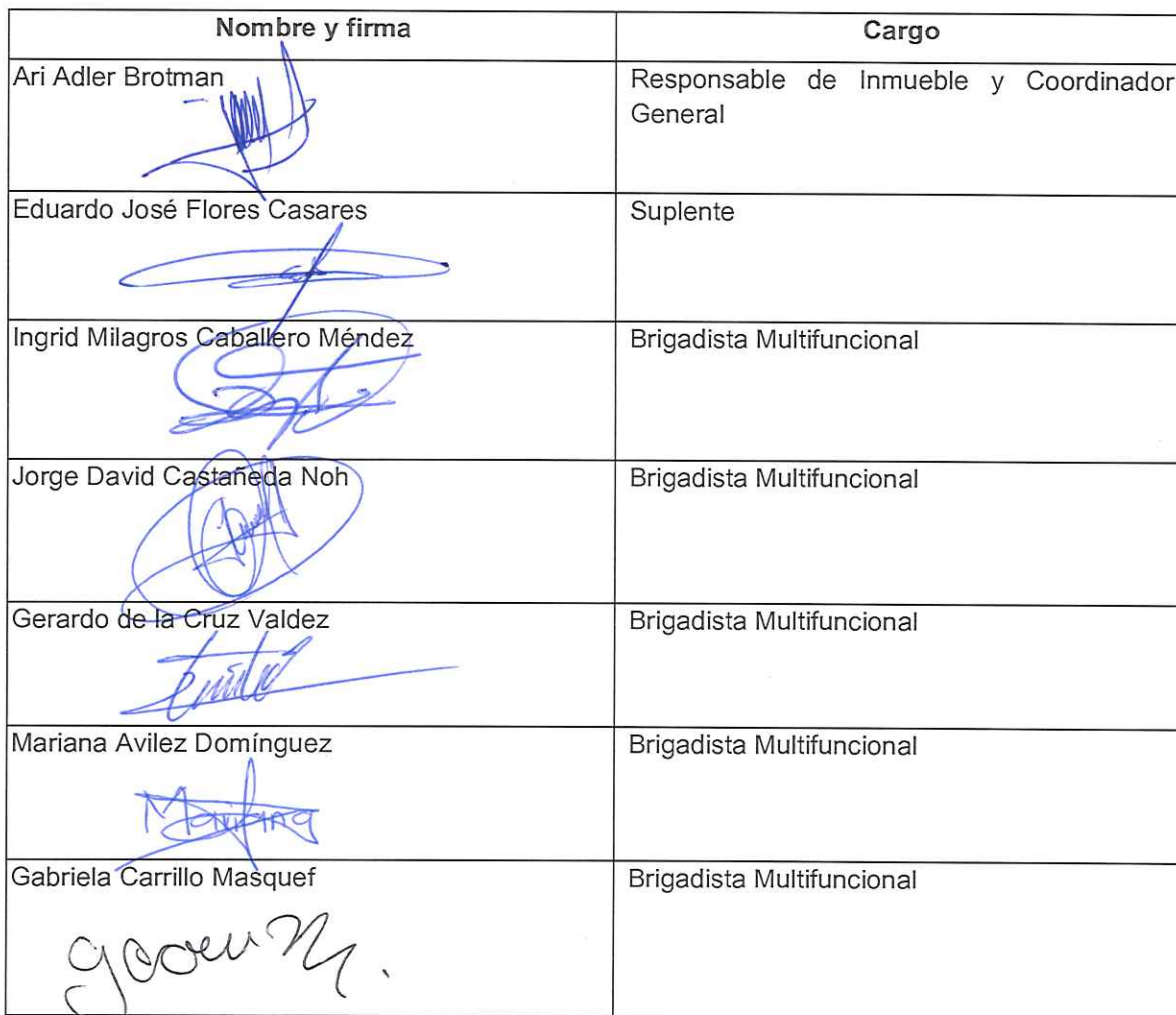 Nombre y firma
Cargo
Ari Adler Brotman
Responsable de Inmueble y Coordinador
General
Eduardo José Flores Casares
Suplente
Ingrid Milagros Caballero Méndez
Brigadista Multifuncional
Jorge David Castañeda Noh
Brigadista Multifuncional
Gerardo de la Cruz Valdez
Brigadista Multifuncional
Mariana Avilez Domínguez
Brigadista Multifuncional
Mariana
Gabriela Carrillo Masquef
Brigadista Multifuncional